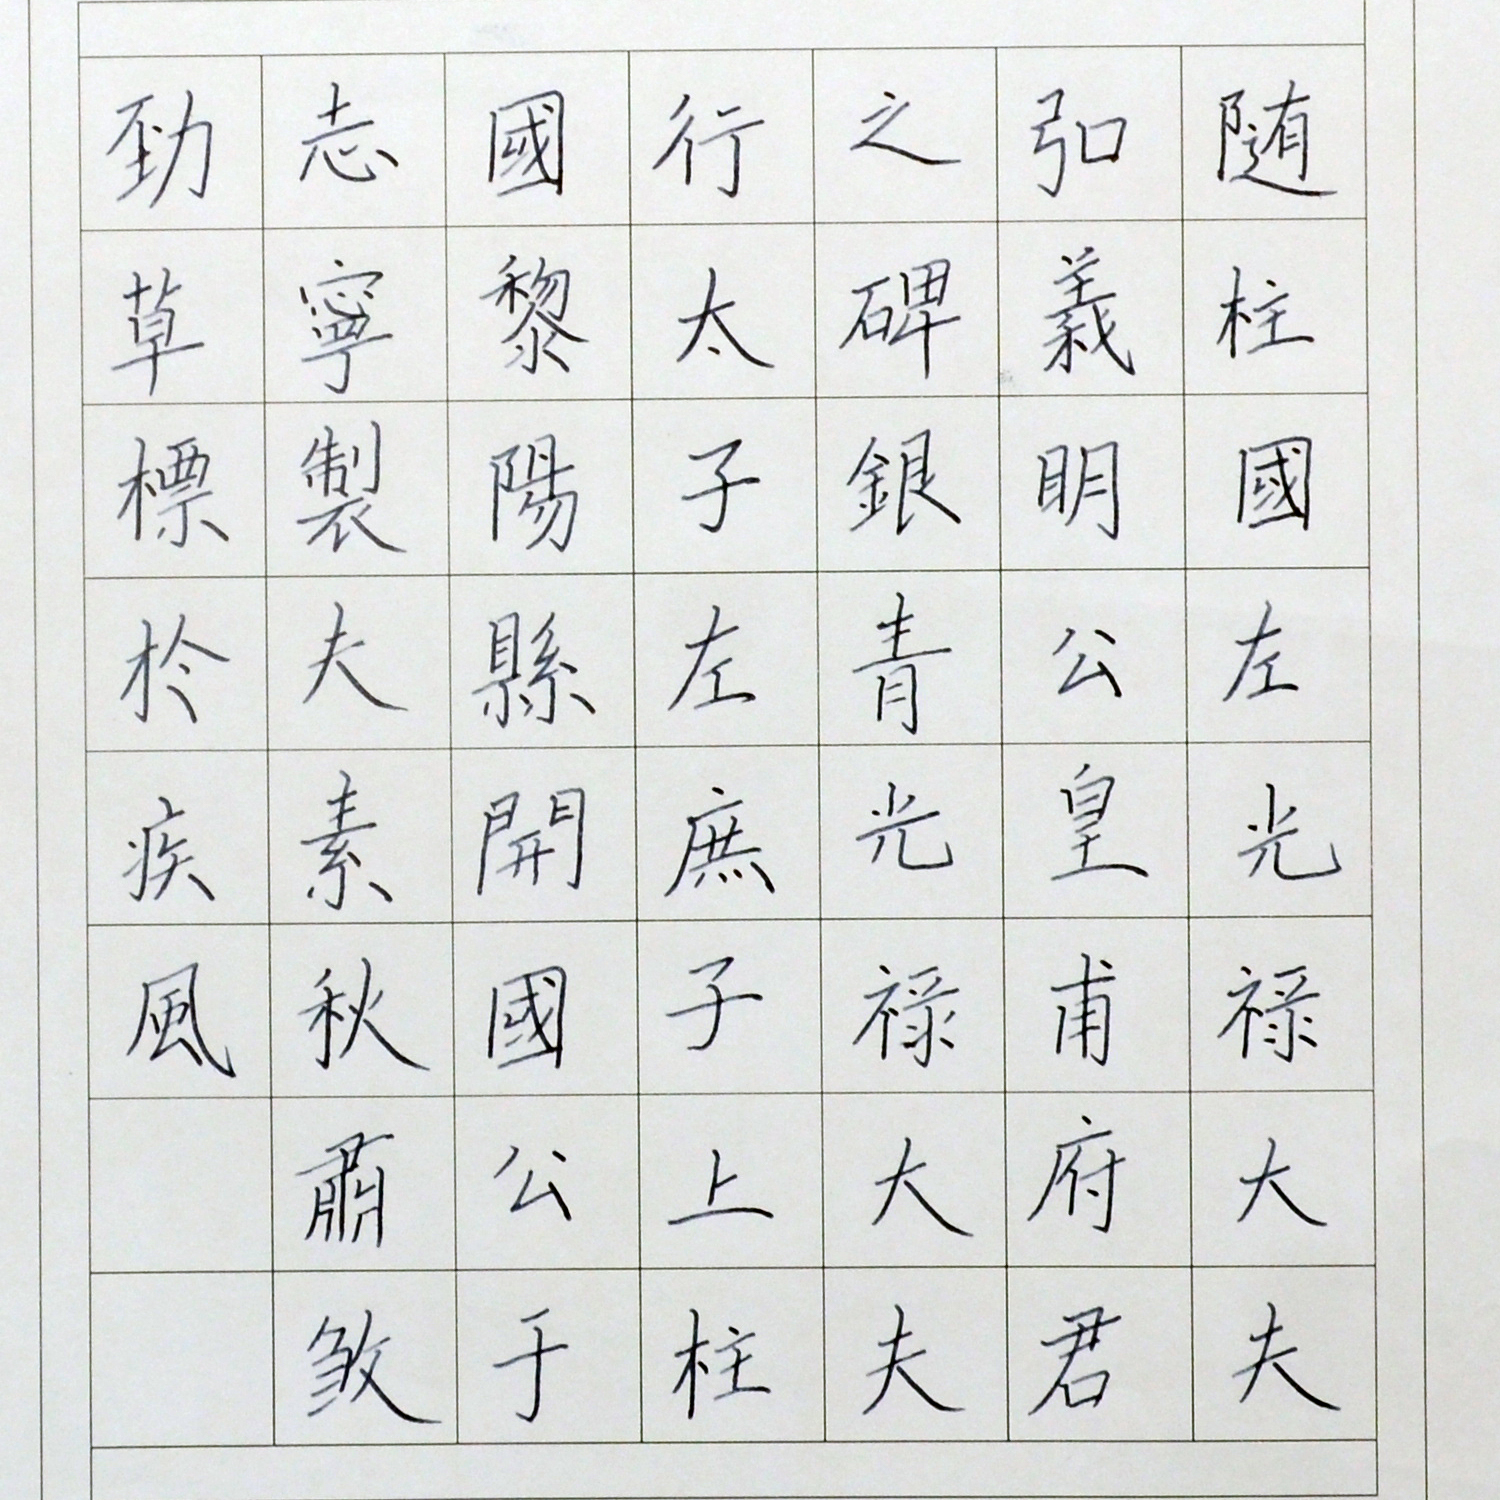 随柱國左光禄大夫
弘義明公皇甫府君
之碑銀青光禄大夫
行太子左庶子上柱
國黎陽縣開國公于
志寧製夫素秋肅煞
勁草標於疾風